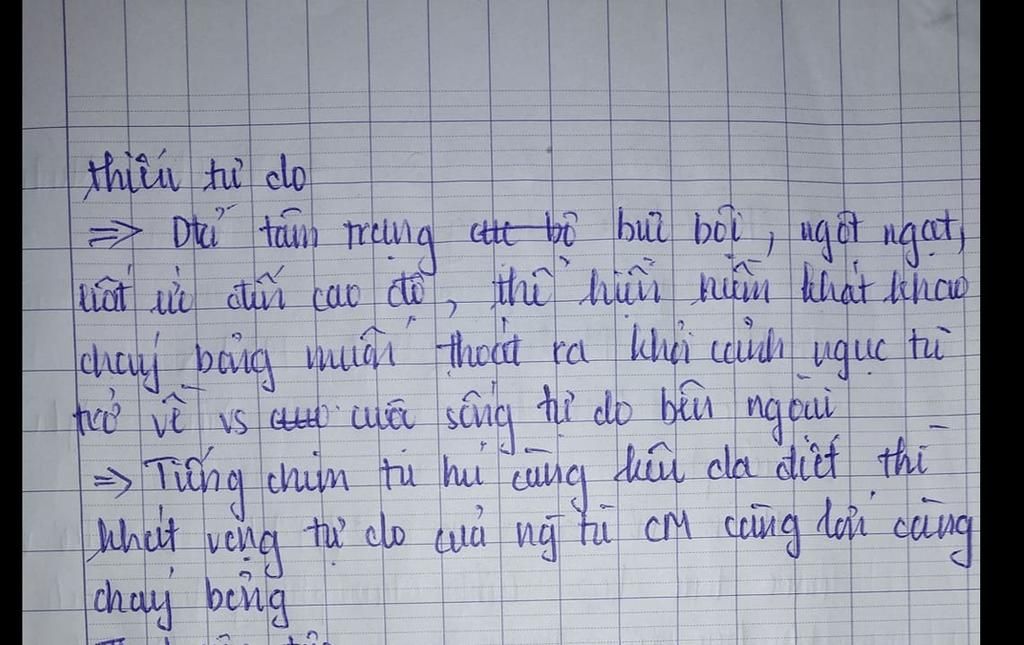 thiếu tự do
=> Đtả tâm trạng bức bối, ngột ngạt,
uất ức đến cao độ, thể hiện niềm khát khao
cháy bỏng muốn thoát ra khỏi cảnh ngục tù
trở về vs cuộc sống tự do bên ngoài
=> Tiếng chim tu hú càng kêu da diết thì
khát vọng tự do của ng tù CM càng lớn càng
cháy bỏng